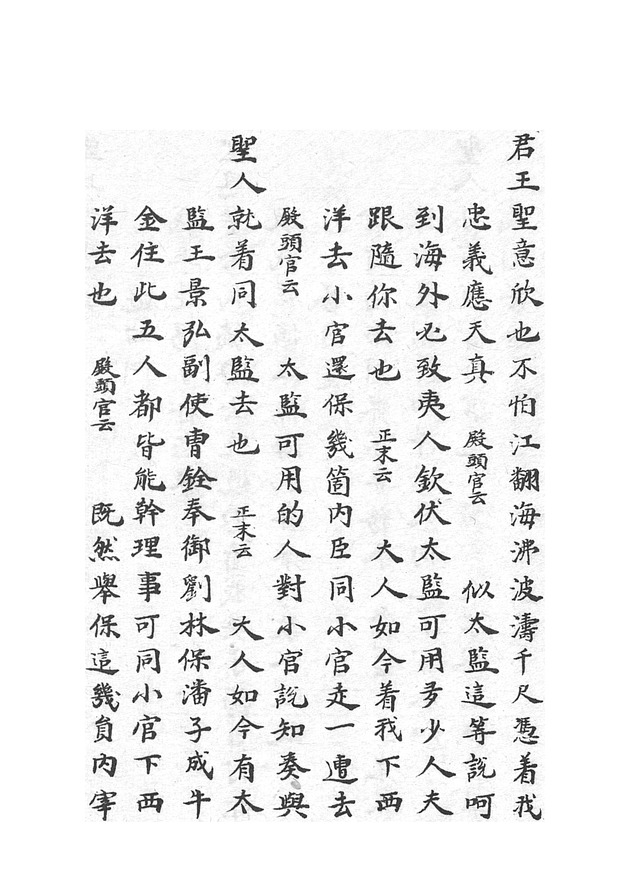 君王聖意欣也不怕江翻海沸波濤千尺憑着我
忠義應天真 殿頭官云 似太監這等說呵
到海外必致夷人欽伏太監可用多少人夫
跟隨你去也 正末云 大人如今着我下西
洋去小官還保幾箇内臣同小官走一遭去
殿頭官云 太監可用的人對小官說知奏與
聖人就着同太監去也 正末云 大人如今有太
監王景弘副使曹銓奉御劉林保潘子成牛
金住此五人都皆能幹理事可同小官下西
洋去也 殿頭官云 既然舉保這幾員内宰